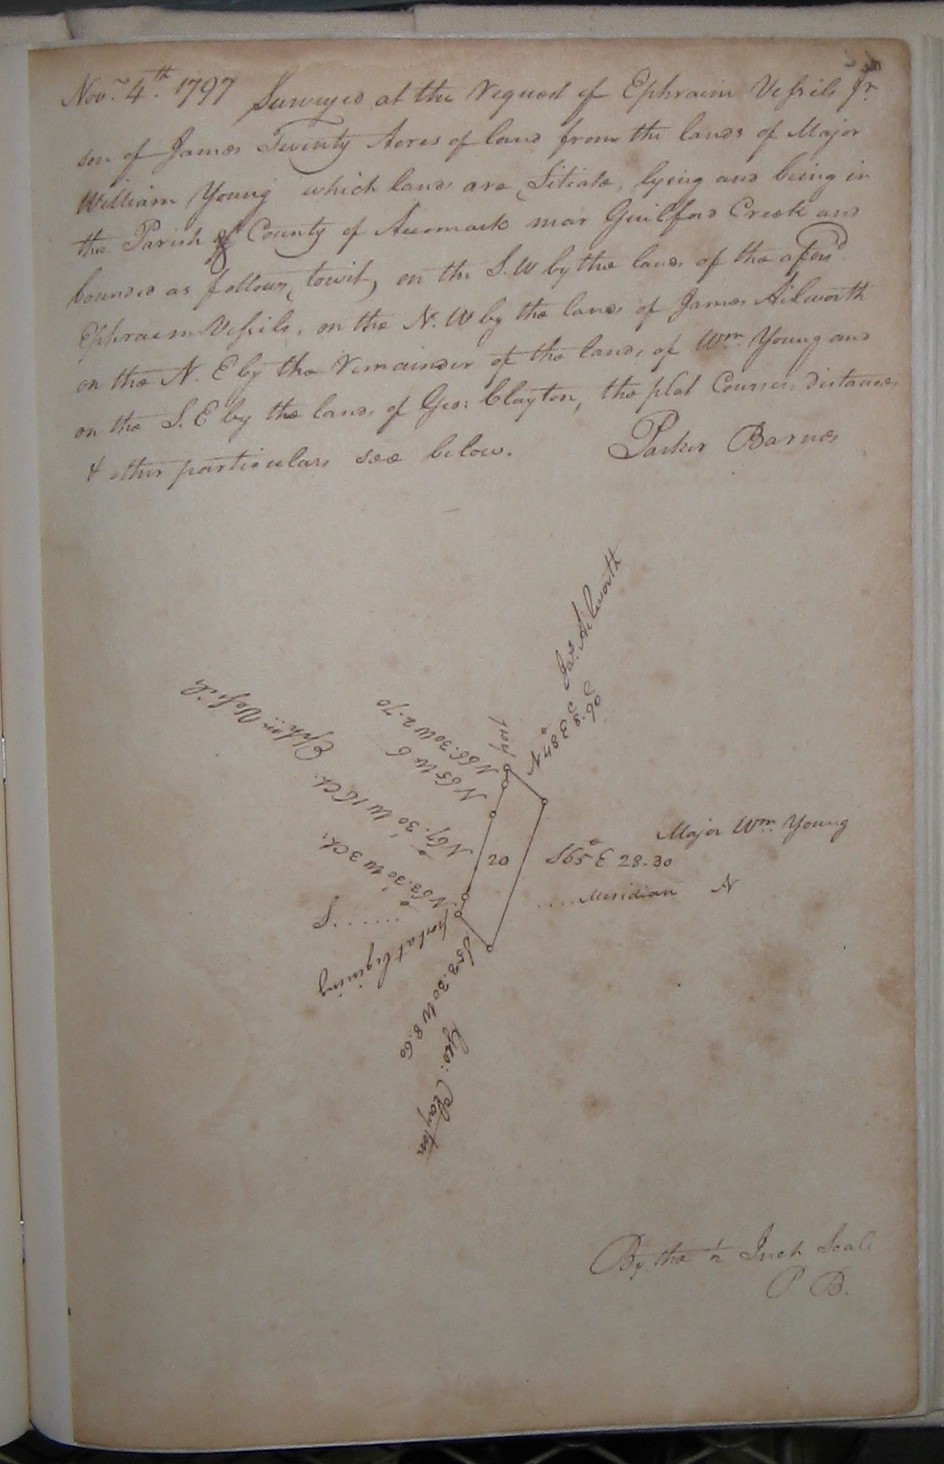 Novr. 4th. 1797 Surveyed at the Request of Ephraim Vessils Jr.
son of James Twenty Acres of land from the lands of Major
William Young which lands are Sitiate, lying and being in
the Parish & County of Accomack near Guilford Creek and
bounded as follows, towit, on the S.W by the lands of the afsd.
Ephraim Vessils, on the N.W by the lands of James Ailworth
on the N.E by the Remainder of the lands of Wm. Young and
on the S.E by the lands of Geo: Clayton, the plat Courses, distances
& other particulars see below. Parker Barnes
Jas. Ailworth
Ephm Vessils
N 65 W 6
N 67.30 W 16 Ch.
N 63.30 W 3 Ch.
20
S 65° E 28-30
Major Wm. Young
Meridian N
S
begining
S 53.30 W 8.60
Geo: Clayton
By the ½ Inch Scale
P B.